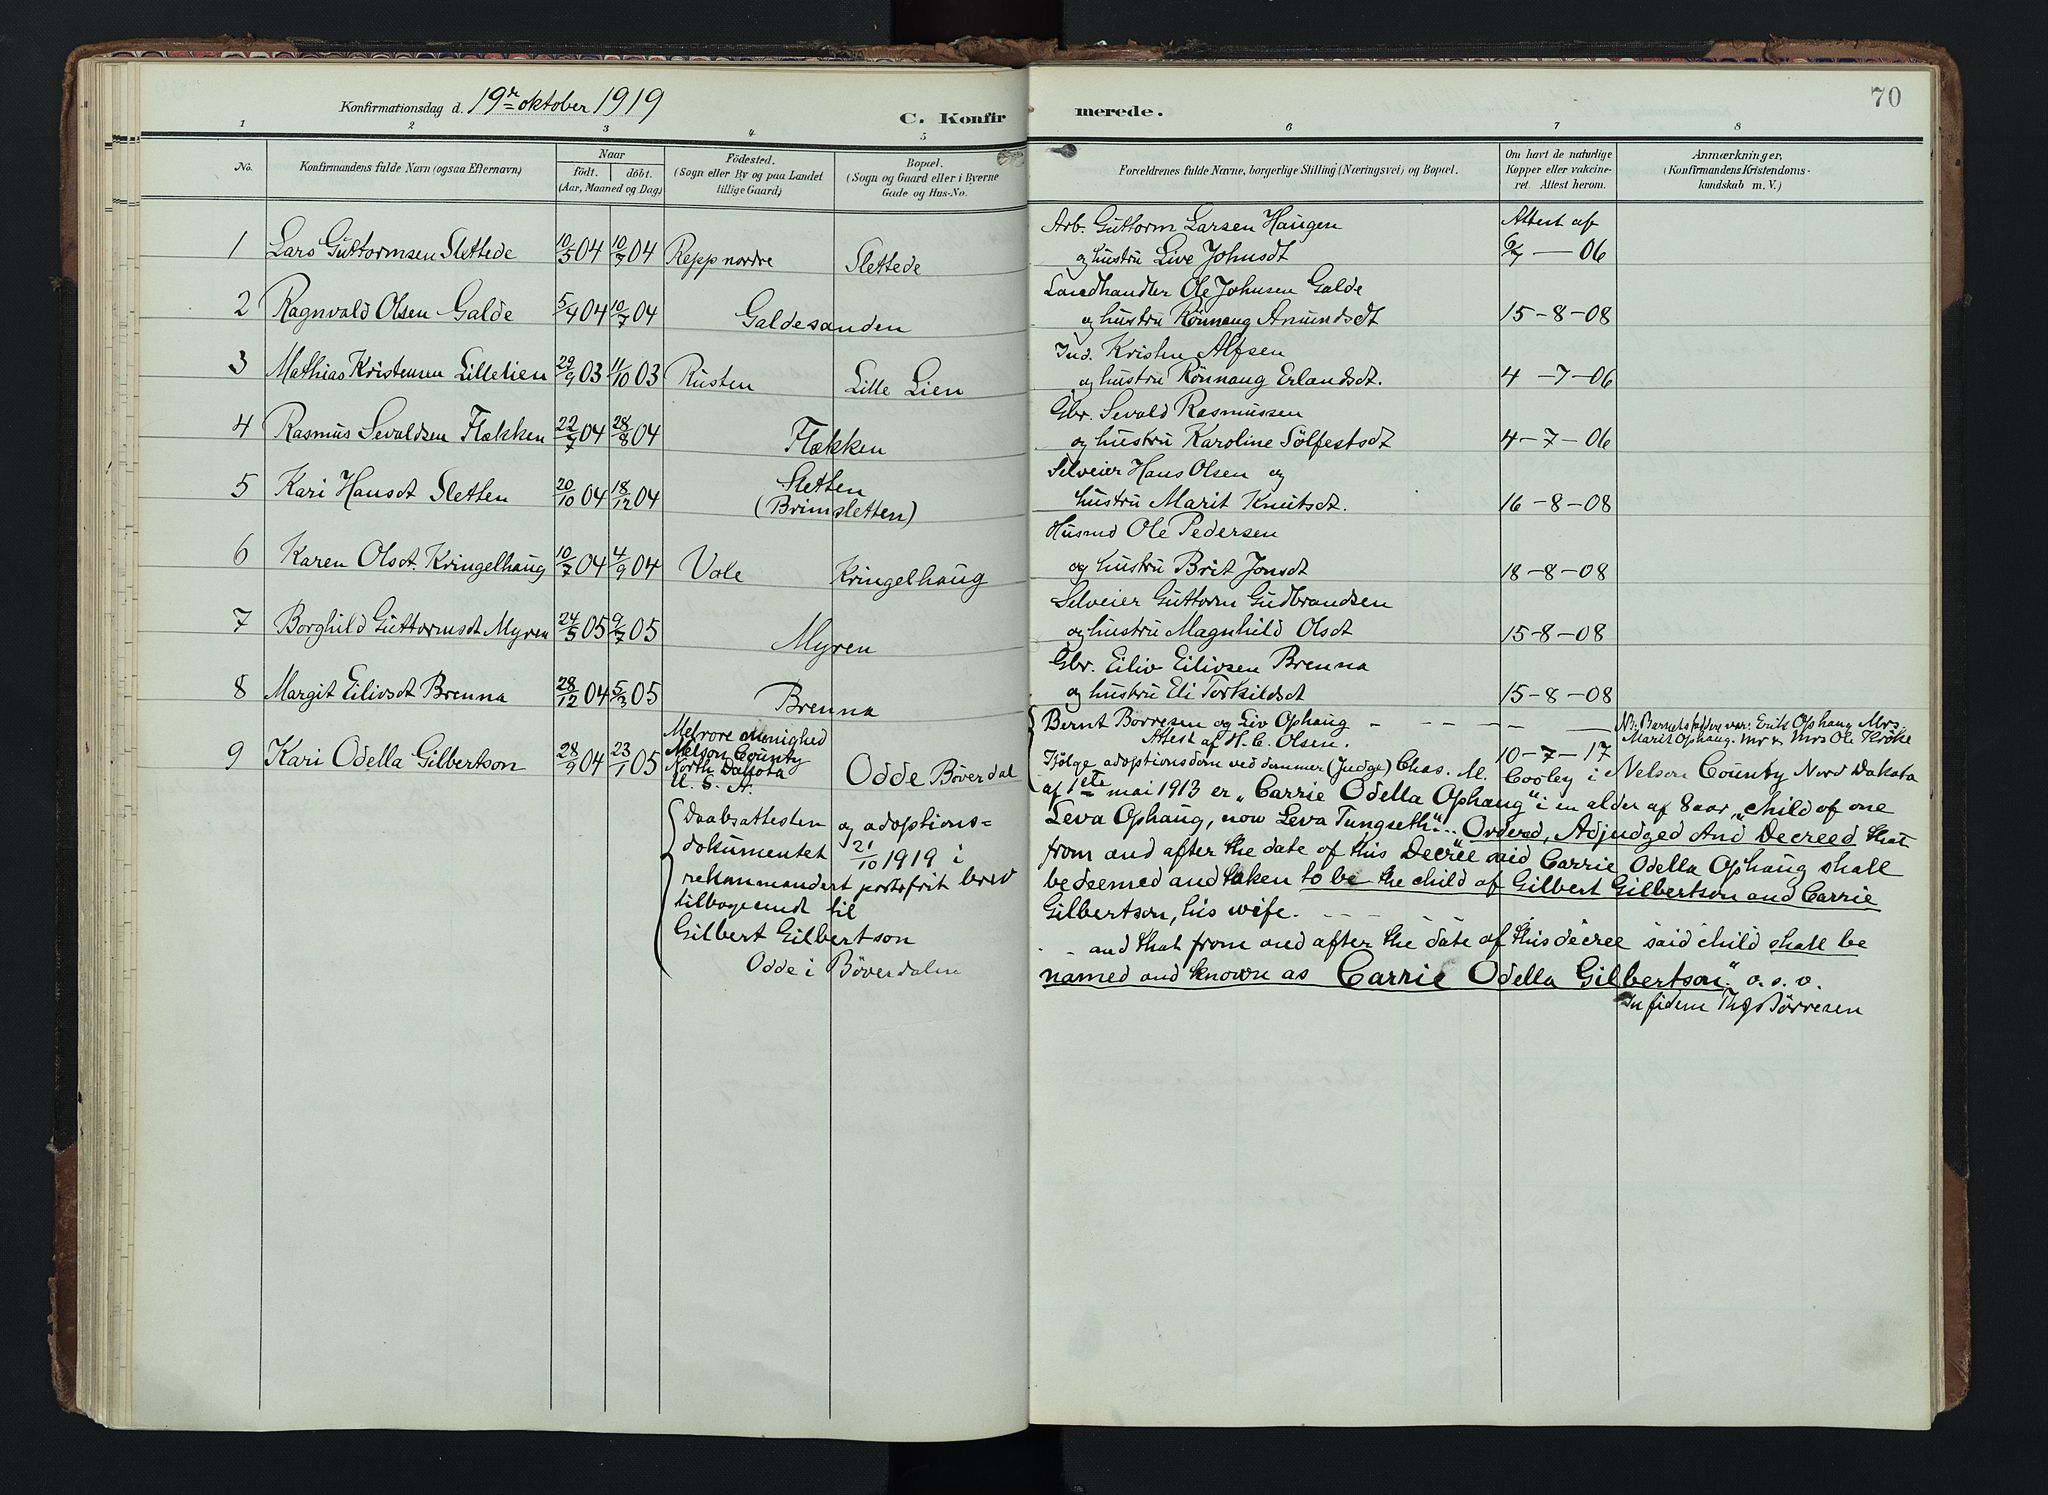 70
Konfirmationsdag d. 19de oktober 1919
C. Konfirmerede.
1 2 3 4 5 6 7 8
No.
Konfirmandens fulde Navn (ogsaa Efternavn)
Naar
födt. döbt.
(Aar, Maaned og Dag)
Födested.
(Sogn eller By og paa Landet
tillige Gaard)
Bopæl.
(Sogn og Gaard eller i Byerne
Gade og Hus-No.
Forældrenes fulde Navne, borgerlige Stilling (Næringsvei) og Bopæl.
Om havt de naturlige
Kopper eller vakcine-
ret. Attest herom.
Anmærkninger,
(Konfirmandens Kristendoms-
kundskab m. V.)
1 Lars Guttormsen Slettede 10/5 04 10/7 04 Repp nordre Slettede
Arb. Guttorm Larsen Haugen
og hustru Live Johnsdt
Attest af
6/7 — 06
2 Ragnvald Olsen Galde 5/4 04 10/7 04 Galdesanden
Landhandler Ole Johnsen Galde
og hustru Rönnaug Amundsdt 15-8-08
3 Mathias Kristensen Lillelien 29/9 03 11/10 03 Rusten Lille Lien
Ind. Kristen Alfsen
og hustru Rönnaug Erlandsdt. 4-7-06
4 Rasmus Sevaldsen Flækken 22/7 04 28/8 04 Flækken
Gbr. Sevald Rasmussen
og hustru Karoline Sölfestsdt 4-7-06
5 Kari Hansdt Sletten 20/10 04 18/12 04 Sletten
(Brimsletten)
Selveier Hans Olsen og
hustru Marit Knutsdt. 16-8-08
6 Karen Olsdt. Kringelhaug 10/7 04 4/9 04 Vole Kringelhaug
Husmd Ole Pedersen
og hustru Brit Jonsdt 18-8-08
7 Borghild Guttormsdt Myren 24/5 05 9/7 05 Myren
Selveier Guttorm Gudbrandsen
og hustru Magnhild Olsdt 15-8-08
8 Margit Eilivsdt Brenna 28/12 04 5/3 05 Brenna
Gbr. Eiliv Eilivsen Brenna
og hustru Eli Torkildsdt 15-8-08
9 Kari Odella Gilbertson 28/9 04 23/1 05
Melrore menighed
Nelson County
North Dakota
U. S. A.
Odde Böverdal
Bernt Borresen og Liv Ophaug — — — — — —
Attest af H. C. Olsen. 10-7-17
NB: Barnets faddere var: Erik Ophaug Mrs.
Marit Ophaug. Mr & Mrs Ole Kröke
Ifölge adoptionsdom ved dommer (Judge) Chas. M. Cooley i Nelson County Nord Dakota
af 1ste mai 1913 er „Carrie Odella Ophaug" i en alder af 8 aar, „child of one
Leva Ophaug, now Leva Tungseth"... Ordered, Adjudged And Decreed that
from and after the date of this Decree said Carrie Odella Ophaug shall
be deemed and taken to be the child of Gilbert Gilbertson and Carrie
Gilbertson, his wife. - - - -
- - and that from and after the date of this decree said child shall be
named and known as Carrie Odella Gilbertson." o. s. v.
In fidem Th Börresen
Daabsattesten og adoptions=
dokumentet 21/10 1919 i
rekommandert portofrit brev
tilbagesendt til
Gilbert Gilbertson
Odde i Böverdalen